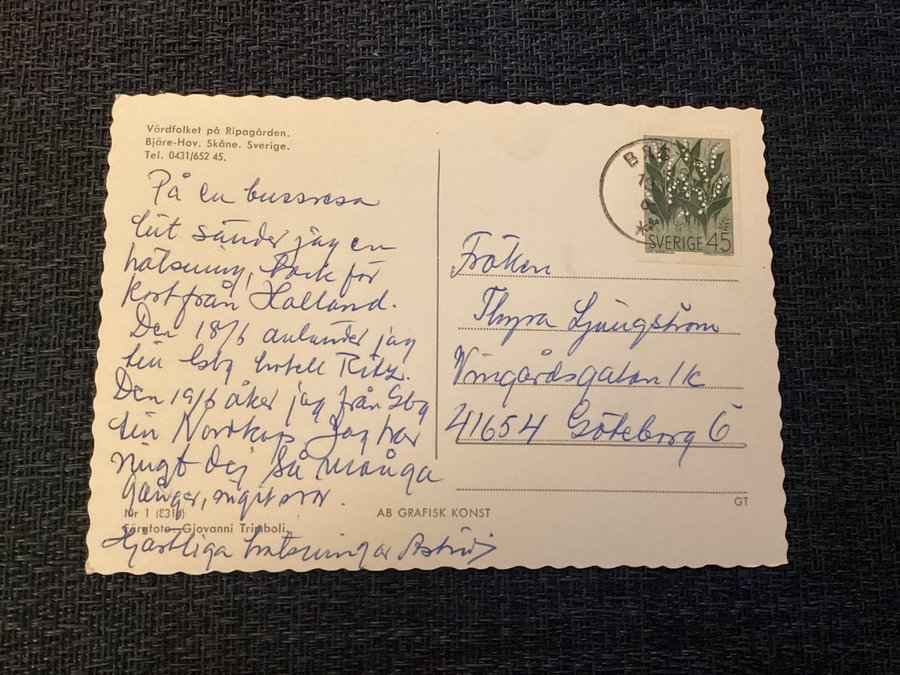 Värdfolket på Ripagården.
Bjäre-Hov. Skåne. Sverige.
Tel. 0431/652 45.
På en bussresa
hit sänder jag en
hälsning, tack för
kort från Holland.
Den 18/6 anländer jag
till Gbg hotell Ritz.
Den 19/6 åker jag från Gbg
till Nordkap. Jag har
ringt dej så många
gånger, inget svar.
Nr 1
Färgfoto Gjovanni Trimboli.
Hjärtliga hälsningar Astrid
AB GRAFISK KONST
SVERIGE 45
Fröken
Thyra Ljungström
Vingårdsgatan 1k
41654 Göteborg 6
GT